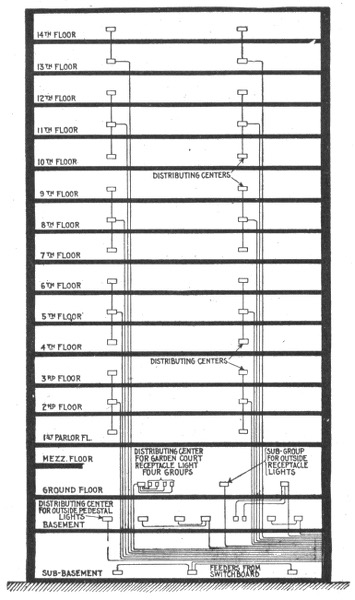 14TH FLOOR
13TH FLOOR
12TH FLOOR
11TH FLOOR
10TH FLOOR
DISTRIBUTING CENTERS
9TH FLOOR
8TH FLOOR
7TH FLOOR
6TH FLOOR
5TH FLOOR
4TH FLOOR
DISTRIBUTING CENTERS
3RD FLOOR
2ND FLOOR
1ST PARLOR FL.
MEZZ. FLOOR
DISTRIBUTING CENTER
FOR GARDEN COURT
RECEPTACLE LIGHT
FOUR GROUPS
SUB-GROUP
FOR OUTSIDE
RECEPTACLE
LIGHTS
GROUND FLOOR
DISTRIBUTING CENTER
FOR OUTSIDE PEDESTAL
LIGHTS
BASEMENT
SUB-BASEMENT
FEEDERS FROM
SWITCHBOARD